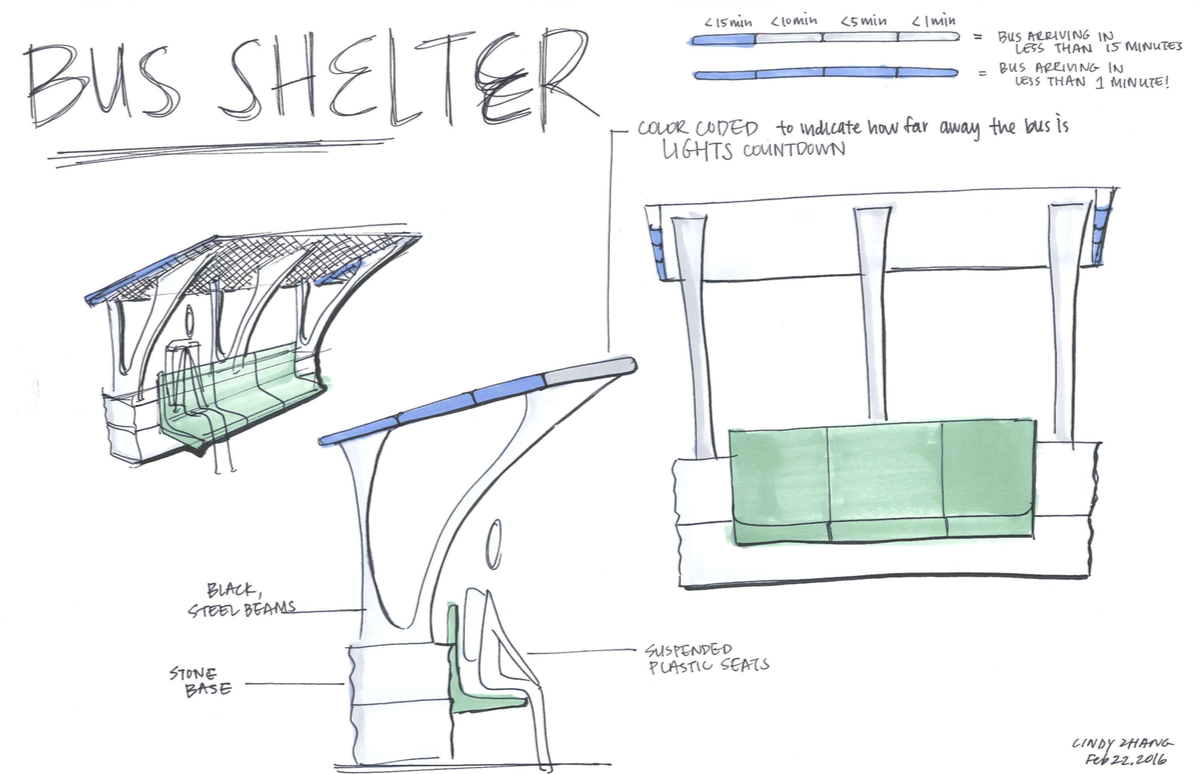 BUS SHELTER
<15min <10min <5min <1min
= BUS ARRIVING IN
LESS THAN 15 MINUTES
= BUS ARRIVING IN
LESS THAN 1 MINUTE!
COLOR CODED to indicate how far away the bus is
LIGHTS COUNTDOWN
BLACK,
STEEL BEAMS
STONE
BASE
SUSPENDED
PLASTIC SEATS
CINDY ZHANG
Feb 22. 2016